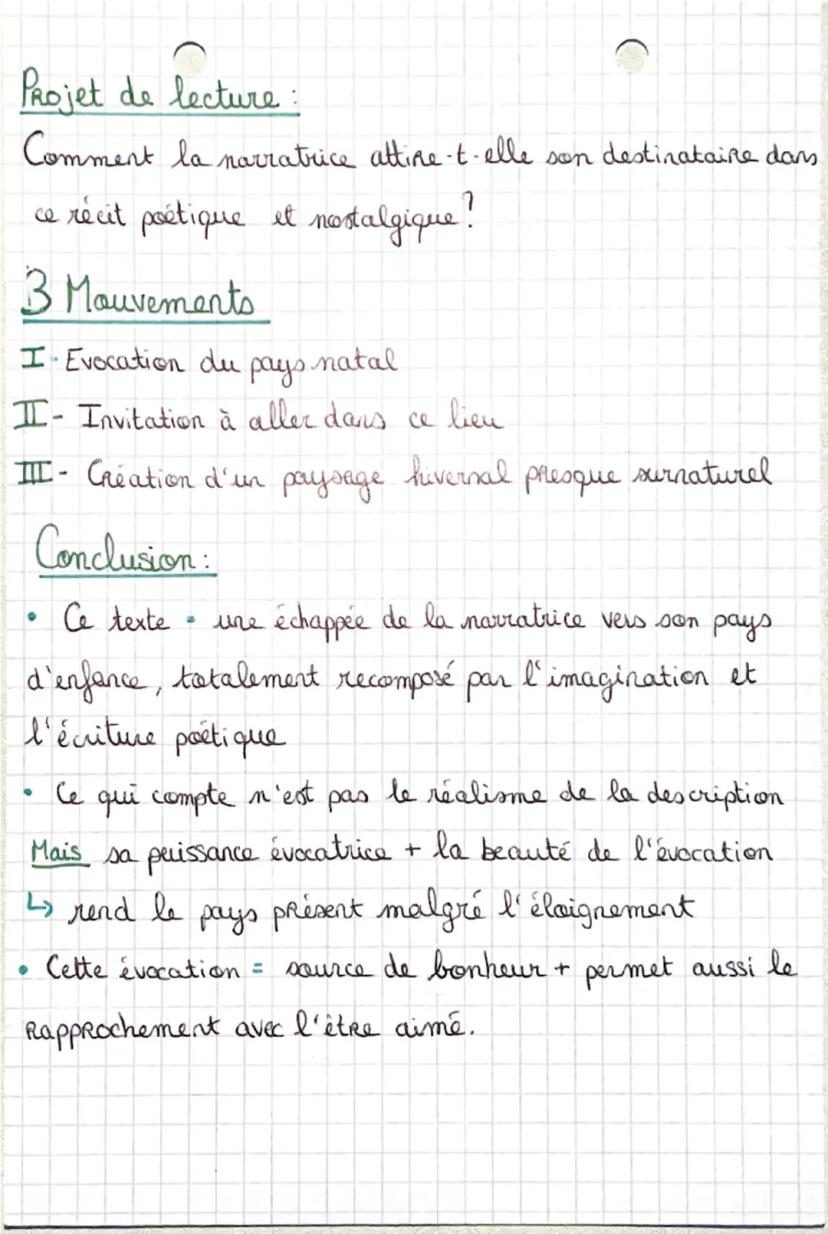 Projet de lecture :
Comment la narratrice attire-t-elle son destinataire dans
ce récit poétique et nostalgique ?
3 Mouvements
I- Evocation du pays natal
II- Invitation à aller dans ce lieu
III- Création d'un paysage hivernal presque surnaturel
Conclusion :
• Ce texte = une échappée de la narratrice vers son pays
d'enfance, totalement recomposé par l'imagination et
l'écriture poétique
• Ce qui compte n'est pas le réalisme de la description
Mais sa puissance évocatrice + la beauté de l'évocation
↳ rend le pays présent malgré l'éloignement
• Cette évocation = source de bonheur + permet aussi le
rapprochement avec l'être aimé.